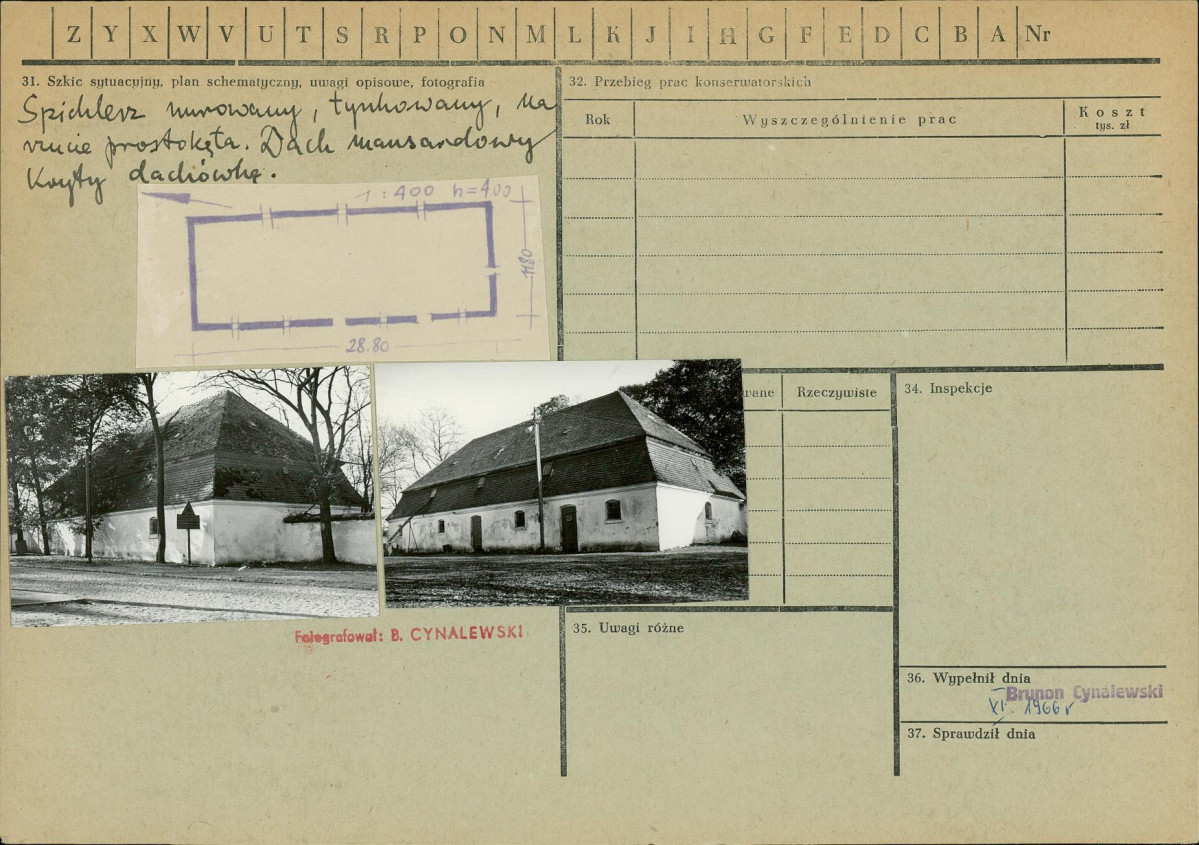 Z Y X W V U T S R P O N M L K J I H G F E D C B A Nr
31. Szkic sytuacyjny, plan schematyczny, uwagi opisowe, fotografia
Spichlerz murowany, tynkowany, na
rzucie prostokąta. Dach mansardowy
kryty dachówką.
1:400 h=4.00
1180
28.80
Fotografował: B. CYNALEWSKI
32. Przebieg prac konserwatorskich
Rok Wyszczególnienie prac Koszt
tys. zł
wane Rzeczywiste
34. Inspekcje
35. Uwagi różne
36. Wypełnił dnia
Brunon Cynalewski
XI. 1966 r
37. Sprawdził dnia